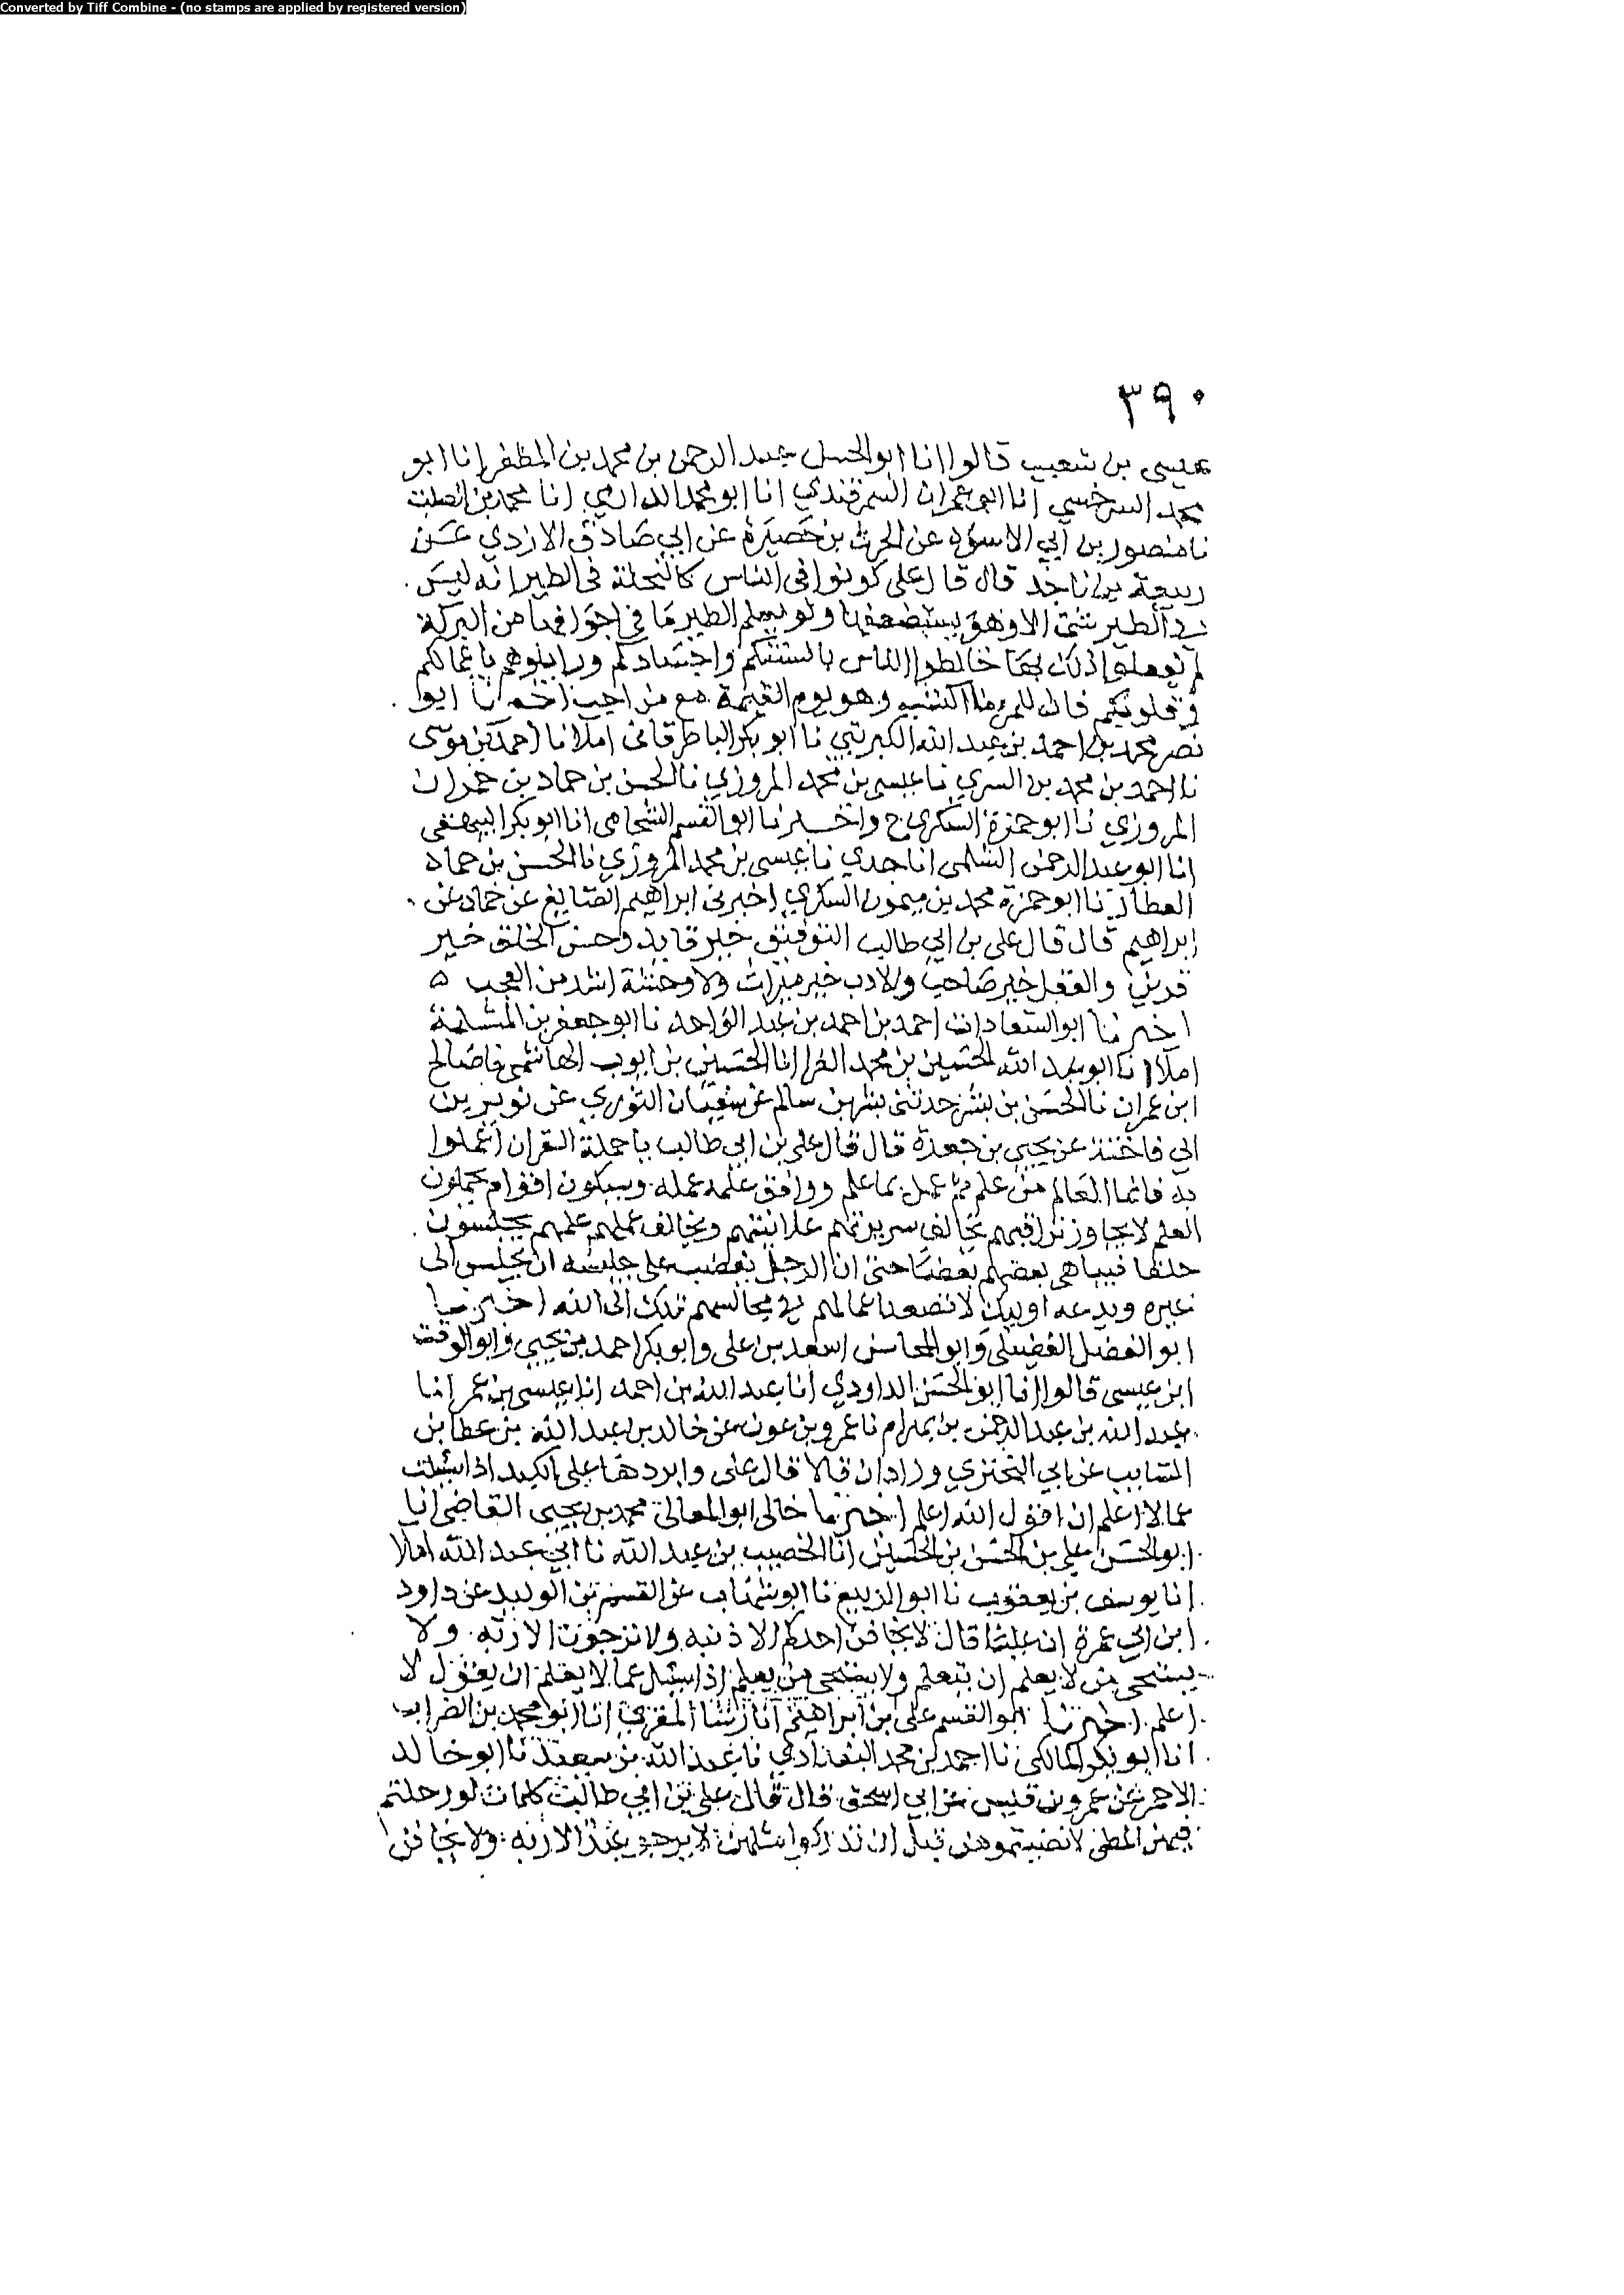 Converted by Tiff Combine - (no stamps are applied by registered version)
٣٩٠
عيسى بن شعيب قالوا انا ابو الحسن عبد الرحمن بن محمد بن المظفر انا ابو
محمد السرخسي انا ابو عمران السمرقندي انا ابو محمد الدارمي انا محمد بن الصلت
نا منصور بن ابي الاسود عن الحرث بن حصيرة عن ابي صادق الازدي عن
ربيعة بن ناجد قال قال علي كونوا في الناس كالنحلة في الطير انه ليس
في الطير شي الا وهو يستضعفها ولو يعلم الطير ما في اجوافها من البركة
لم يفعلوا ذلك بها خالطوا الناس بالسنتكم واجسادكم وزايلوهم باعمالكم
وقلوبكم فان للمرء ما اكتسب وهو يوم القيمة مع من احب اخبرنا ابو
نصر محمد بن احمد بن عبد الله الكبريتي نا ابو بكر الباطرقاني املا نا احمد بن موسى
نا احمد بن محمد بن السري نا عيسى بن محمد المروزي نا الحسن بن حماد بن حمران
المروزي نا ابو حمزة السكري ح واخبرنا ابو القسم الشحامي انا ابو بكر البيهقي
انا ابو عبد الرحمن السلمي انا جدي نا عيسى بن محمد المروزي نا الحسن بن حماد
العطار نا ابو حمزة محمد بن ميمون السكري اخبرني ابراهيم الصايغ عن حماد عن
ابراهيم قال قال علي بن ابي طالب التوفيق خير قايد وحسن الخلق خير
قرين والعقل خير صاحب والادب خير ميراث ولا وحشة اشد من العجب ه
اخبرنا ابو السعادات احمد بن احمد بن عبد الواحد نا ابو جعفر بن المسلمة
املا انا ابو عبد الله الحسين بن محمد انا الحسين بن ايوب الهاشمي نا صالح
ابن عمران نا الحسن بن بشر حدثني بشر بن سالم عن سفيان الثوري عن ثوير بن
ابي فاختة عن يحيى بن جعدة قال قال علي بن ابي طالب يا حملة القران اعملوا
به فانما العالم من علم ثم عمل بما علم ووافق علمه عمله وسيكون اقوام يحملون
العلم لا يجاوز تراقيهم تخالف سريرتهم علانيتهم ويخالف عملهم علمهم يجلسون
حلقا فيباهي بعضهم بعضا حتى ان الرجل يغضب على جليسه ان يجلس الى
غيره ويدعه اوليك لا تصعد اعمالهم في مجالسهم تلك الى الله اخبرنا
ابو الفضل الفضيلي وابو المحاسن اسعد بن علي وابو بكر احمد بن يحيى وابو الوقت
ابن عيسى قالوا انا ابو الحسن الداودي انا عبد الله بن احمد انا عيسى بن عمر انا
عبد الله بن عبد الرحمن بن بهرام نا عمرو بن عون عن خالد بن عبد الله عن عطا بن
السايب عن ابي البختري وزاذان قالا قال علي وابردها على الكبد اذا سئلت
عما لا اعلم ان اقول الله اعلم اخبرنا خالي ابو المعالي محمد بن يحيى القاضي انا
ابو الحسن علي بن الحسن بن الحسين انا الخصيب بن عبد الله نا ابي عبد الله املا
انا يوسف بن يعقوب نا ابو الربيع نا ابو شهاب عن القسم بن الوليد عن داود
ابن ابي عمرة ان عليا قال لا يخافن احدكم الا ذنبه ولا ترجون الا ربه ولا
يستحي من لا يعلم ان يتعلم ولا يستحي من يعلم اذا سئل عما لا يعلم ان يقول لا
اعلم اخبرنا ابو القسم علي بن ابراهيم انا رشا المقري انا ابو محمد بن الضراب
انا ابو بكر المالكي نا احمد بن محمد البغدادي نا عبد الله بن سعيد نا ابو خالد
الاحمر عن عمرو بن قيس عن ابي اسحق قال قال علي بن ابي طالب كلمات لو رحلتم
فيهن المطي لانضيتموهن قبل ان تدركوا مثلهن لا يرجو عبد الا ربه ولا يخافن